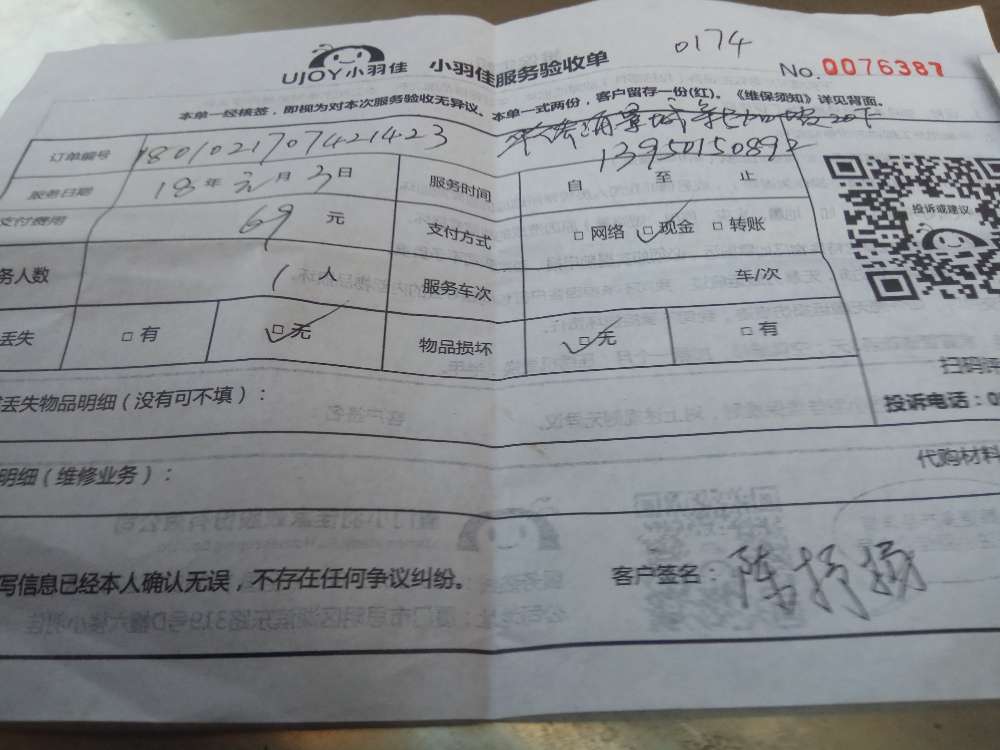 0174
UJOY小羽佳 小羽佳服务验收单 No.0076387
本单一经核签，即视为对本次服务验收无异议。本单一式两份，客户留存一份(红)。《维保须知》详见背面。
订单编号 1801021707421423
13950150892
服务日期 18年元月3日 服务时间 自 至 止
支付费用 69元 支付方式 □网络 □现金 □转账
务人数 1人 服务车次 车/次
丢失 □有 □无 物品损坏 □无 □有
投诉或建议
扫码评
丢失物品明细(没有可不填)： 投诉电话：05
明细(维修业务)： 代购材料
写信息已经本人确认无误，不存在任何争议纠纷。 客户签名：陈抒扬